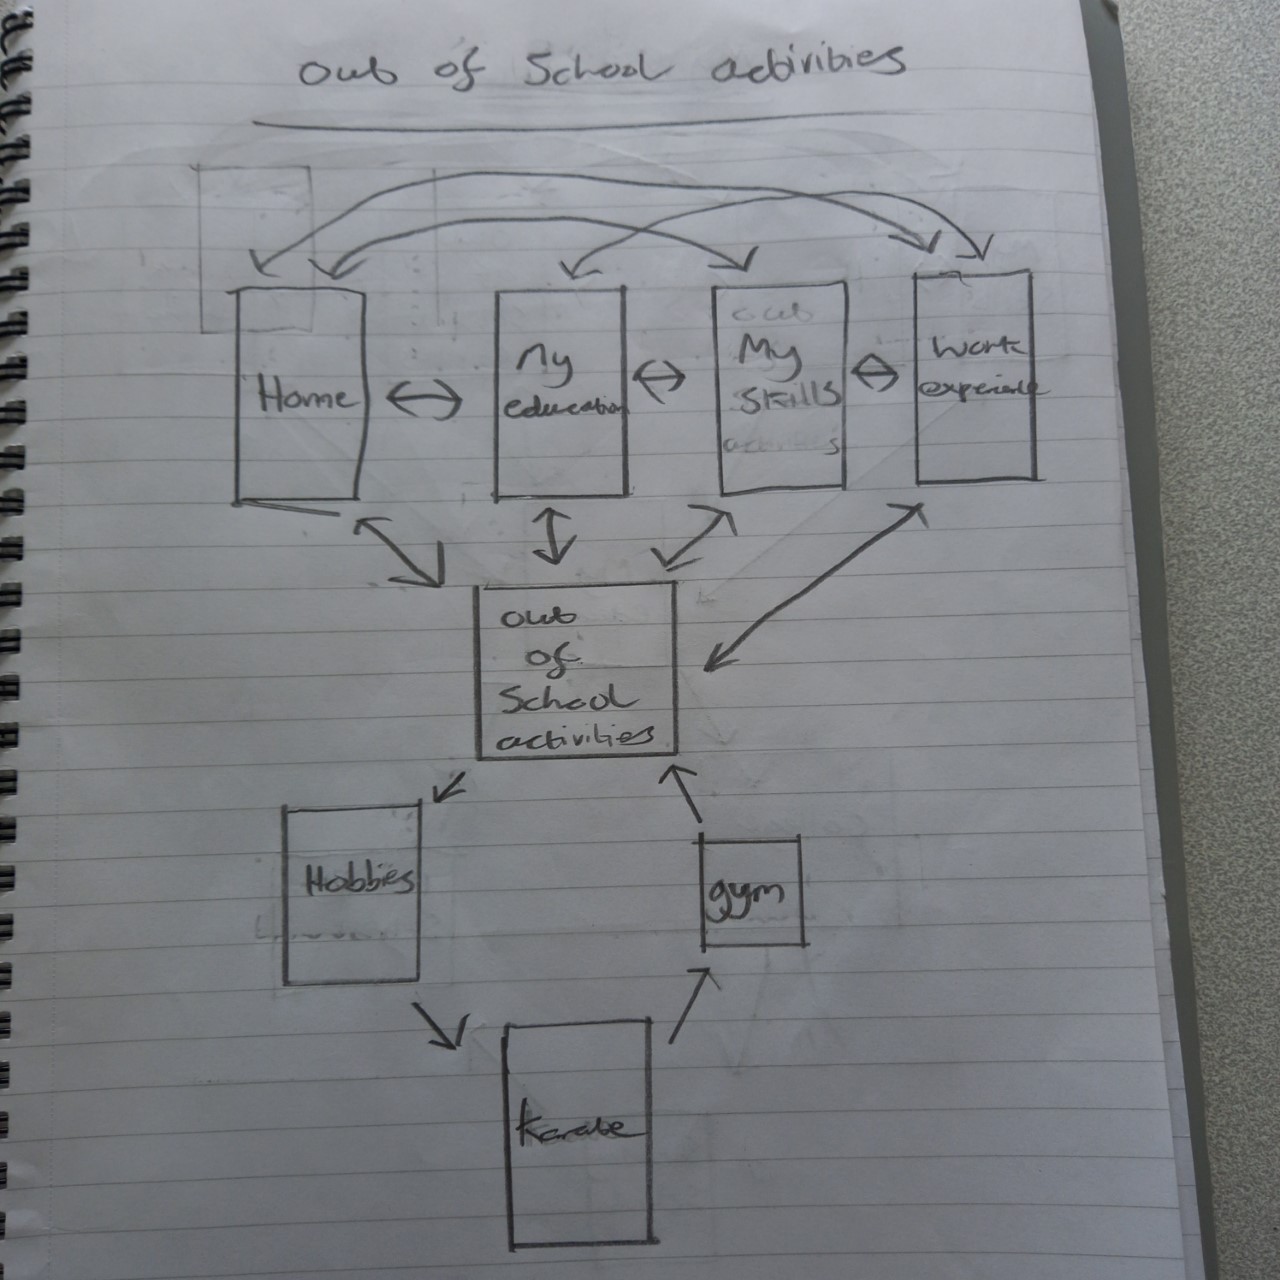 Out of School activities
Home
My
education
out
My
Skills
activities
Work
experience
out
of
School
activities
Hobbies
gym
Karate